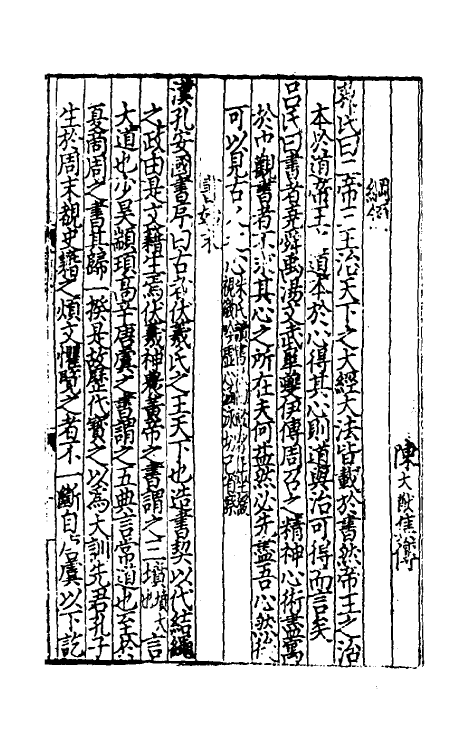 陳大猷集傳
綱領
鄭氏曰二帝三王治天下之大經大法皆載於書然帝王之治
本於道帝王道本於心得其心則道與治可得而言矣
呂氏曰書者堯舜禹湯文武皋夔伊傅周召之精神心術盡寓
於中觀書者不求其心之所在夫何益然必先盡吾心然後
可以見古人之心
書始末
漢孔安國書序曰古者伏羲氏之王天下也造書契以代結繩
之政由是文籍生焉伏羲神農黃帝之書謂之三墳墳大也言
大道也少昊顓頊高辛唐虞之書謂之五典言常道也至於
夏商周之書其歸一揆是故歷代寶之以為大訓先君孔子
生於周末覩史籍之煩文懼覽之者不一斷自唐虞以下訖